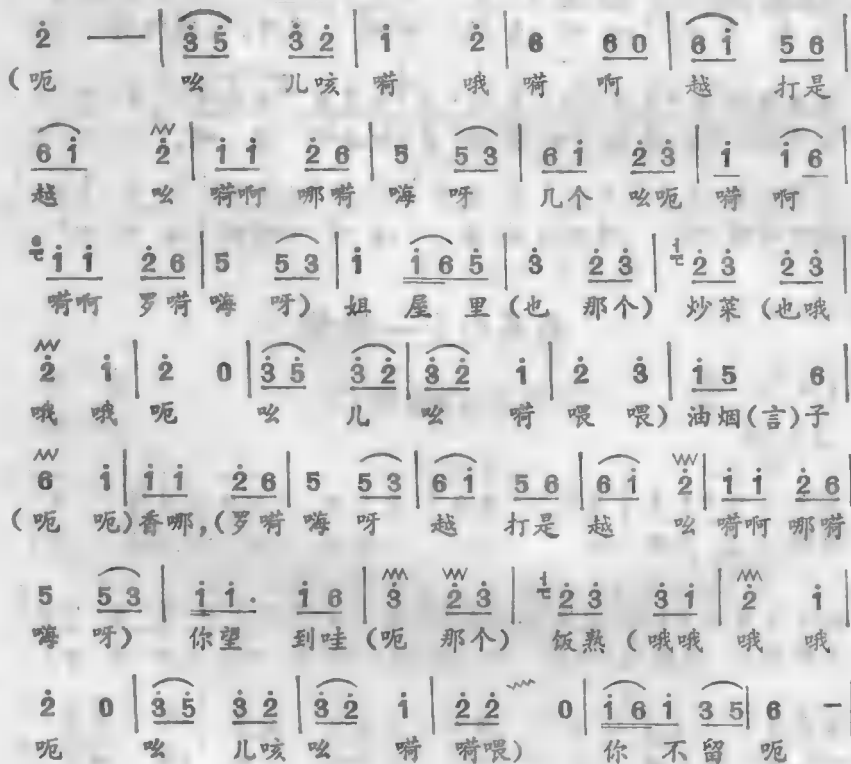 2 — | 3 5 3 2 | 1 2 | 6 6 0 | 6 1 5 6 |
(呃 吆 儿咳 嗬 哦 嗬 啊 越 打是
6 1 2 | 1 1 2 6 | 5 5 3 | 6 1 2 3 | 1 1 6 |
越 吆 嗬啊 哪嗬 嗨 呀 几个 吆呃 嗬 啊
1 1 2 6 | 5 5 3 | 1 1 6 5 | 3 2 3 | 2 3 2 3 |
嗬啊 罗嗬 嗨 呀) 姐 屋 里 (也 那个) 炒菜 (也哦
2 1 | 2 0 | 3 5 3 2 | 3 2 1 | 2 3 | 1 5 6 |
哦 哦 呃 吆 儿 吆 嗬 喂 喂) 油烟(言)子
6 1 | 1 1 2 6 | 5 5 3 | 6 1 5 6 | 6 1 2 | 1 1 2 6 |
(呃 呃)香哪,(罗嗬 嗨 呀 越 打是 越 吆 嗬啊 哪嗬
5 5 3 | 1 1 · 1 6 | 3 2 3 | 2 3 3 1 | 2 1 |
嗨 呀) 你望 到哇 (呃 那个) 饭熟 (哦哦 哦 哦
2 0 | 3 5 3 2 | 3 2 1 | 2 2 0 | 1 6 1 3 5 | 6 -
呃 吆 儿咳 吆 嗬 嗬喂) 你 不留 呃